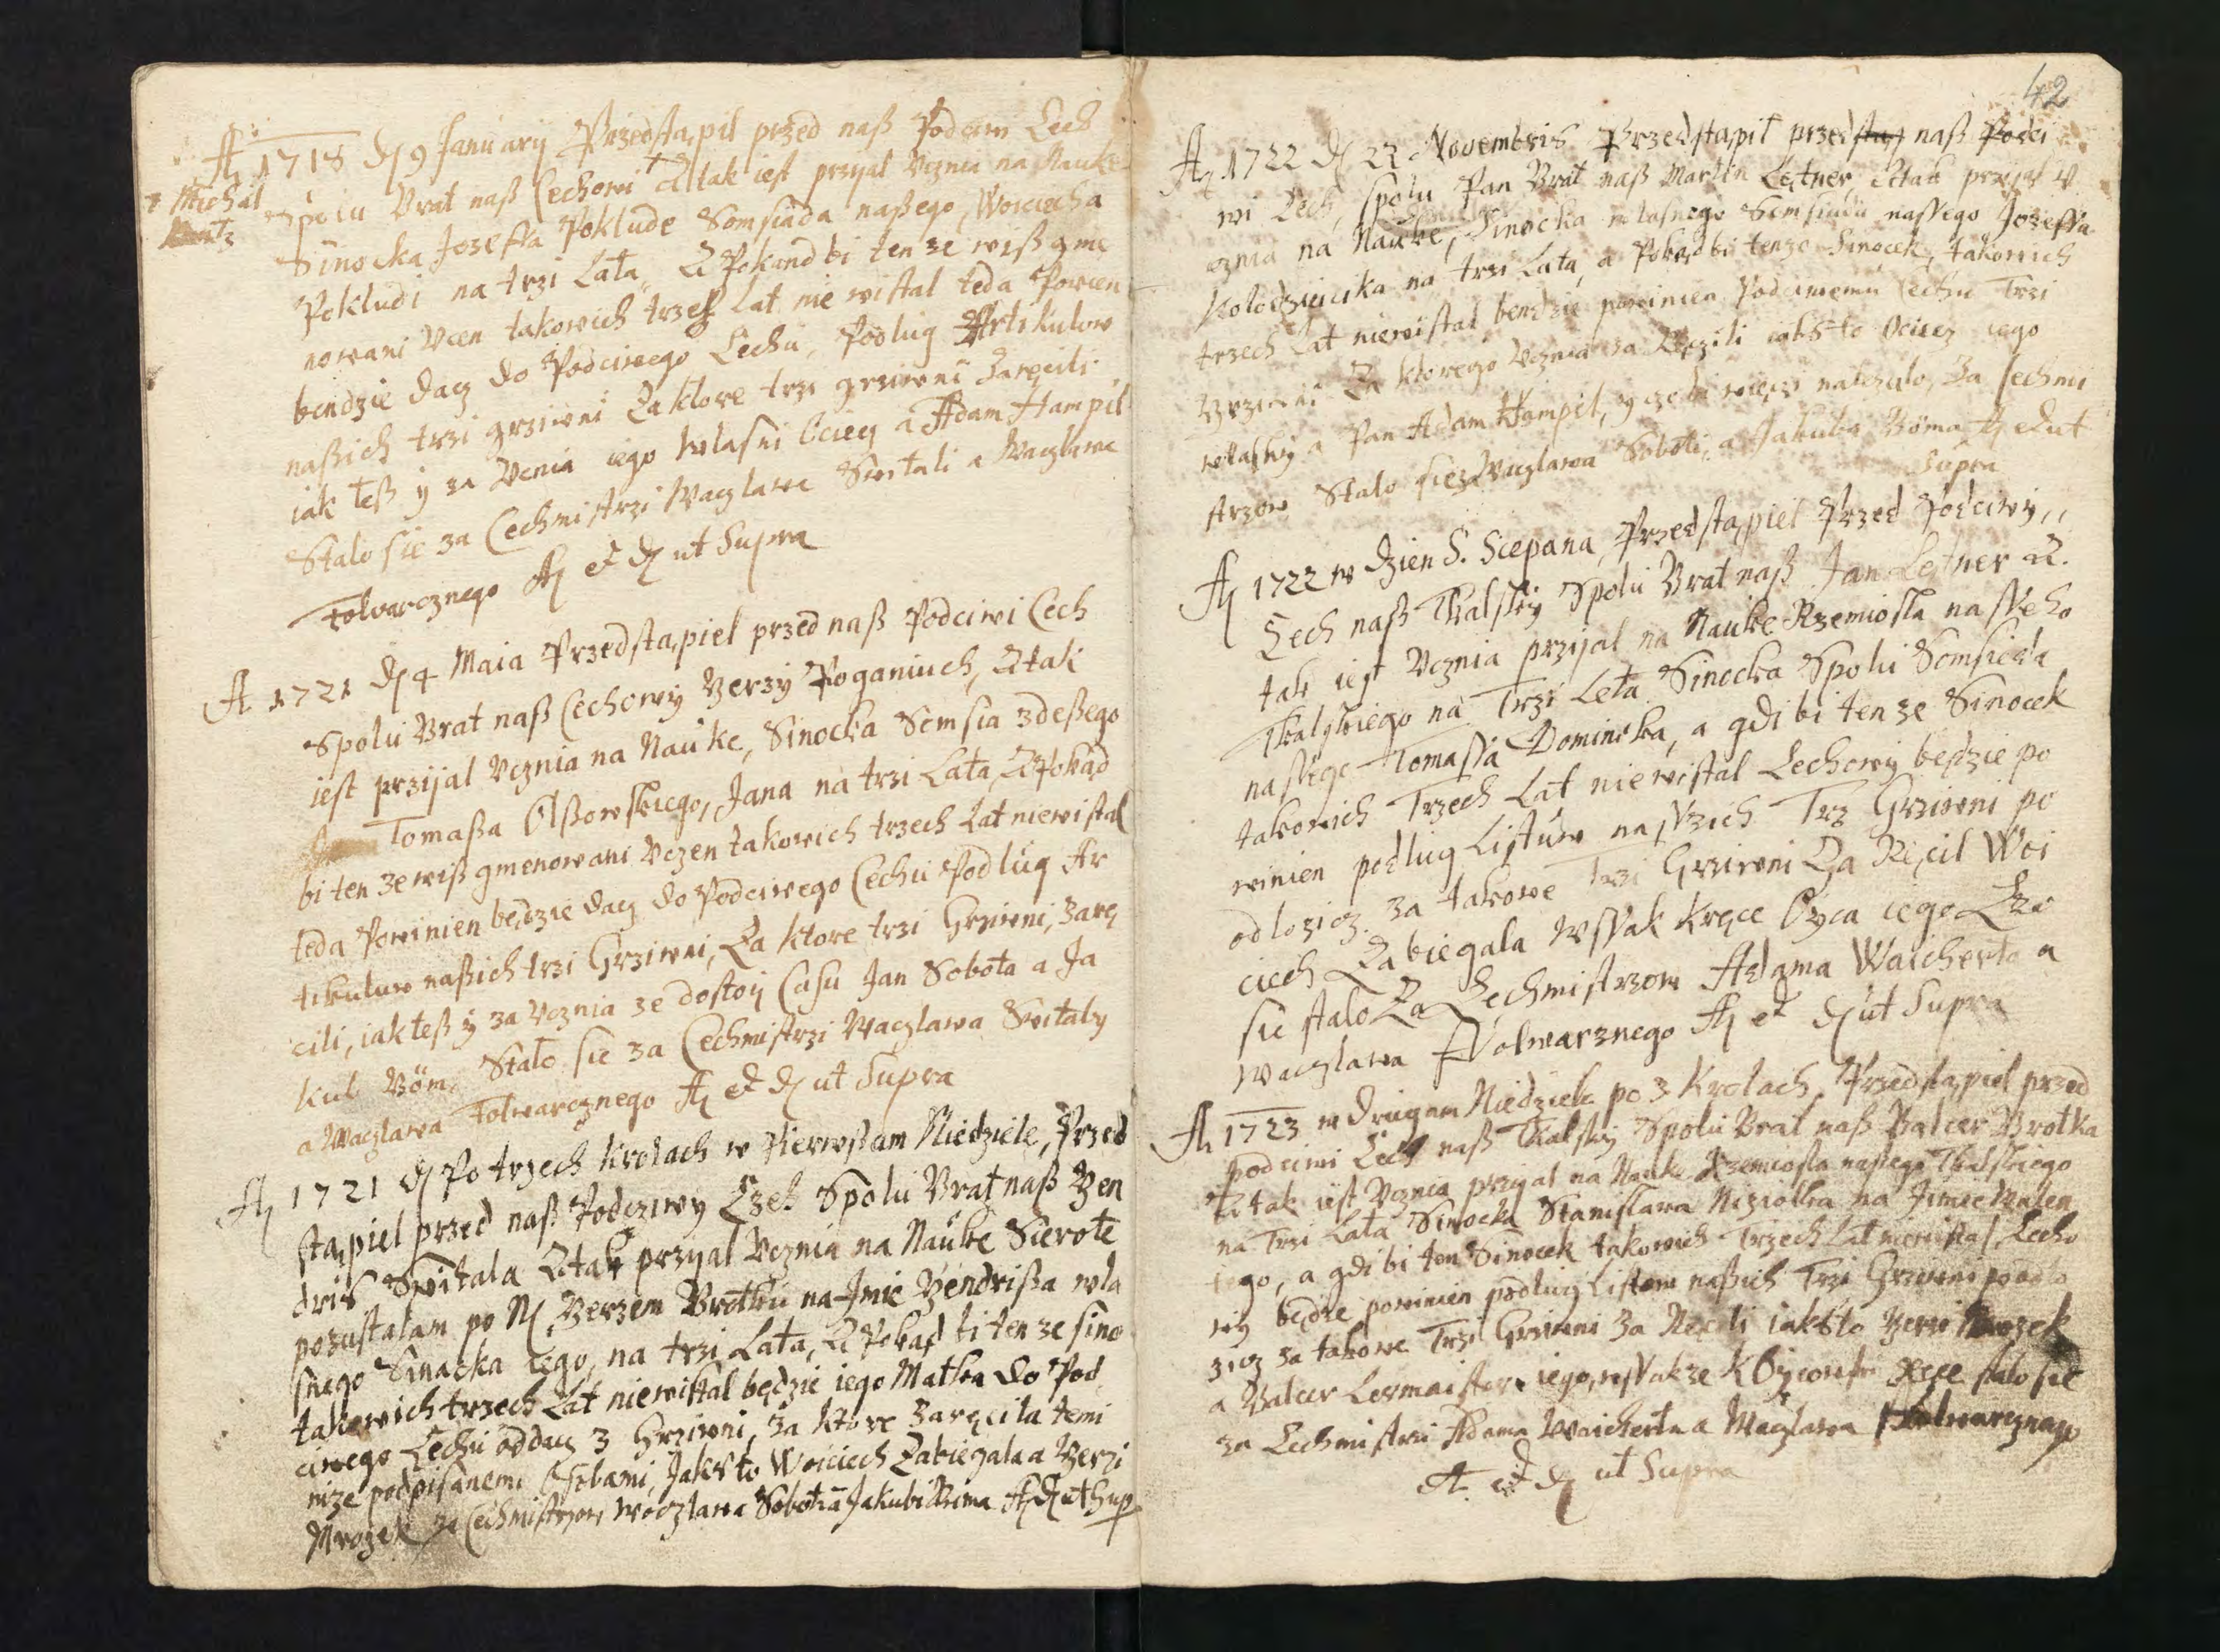 A͞o 1718 d͞ 9 Januarÿ Przedstąpil przed naß Podciwi Cech
+ Michal
Spolu Brat naß Cechowi + A tak iest przyal Ucznia na Nauke
Sinocka Josefa Poklude Somsiada naßego, Woiciecha
Pokludi na trzi Lata, A Pokand bi ten ze wiß gme
nowani Ucen takowich trzech lat nie wistal teda Powien
bendzie dacz do Podciwego Cechu, Podlug Artikulow
naßich trzi grziwni Za ktore trzi grziwni Zaręcili
iak teß ÿ za Ucnia iego wlasni Ociecz a Adam Hampil
Stalo sie za Cechmistrzi Waczlawa Switali a Waczlawa
Folwarcznego A͞o et d͞ ut Supra
A 1721 d͞ 4 Maia Przedstąpiel przed naß Podciwi Cech
Spolu Brat naß Cechowÿ Yerzÿ Poganiuch, A tak
iest przijal Ucznia na Nauke, Sinocka Somsia zdeßego
Tomaßa Olßowskiego, Jana na trzi Lata, A Pokad
bi ten ze wiß gmenowani Uczen takowich trzech Lat niewistal
teda Powinien będzie dacz do Podciwego Cechu Podlug Ar
tikulow naßich trzi Grziwni, Za ktore trzi Grziwni, Zarę
cili, iak teß ÿ za Ucznia ze dostoÿ Casu Jan Sobota a Ja
kub Böm. Stalo sie za Cechmistrzi Waczlawa Switaly
a Waczlawa Folwarcznego A͞o et d͞ ut Supra
A͞o 1721 d͞ Po trzech Krolach w Pierwßam Niedziele, Przed
stąpiel przed naß Podcziwy Czech Spolu Brat naß Yen
dris Switala A tak przyal Ucznia na Nauke Sierote
pozustalam po N͞ Yerzem Brotku na Jmie Yendrißa wla
snego Sinacka iego, na trzi Lata, A Pokad bi ten ze sino
takowich trzech Lat niewistal będzie iego Matka do Pod
ciwego Cechu oddacz 3 Grziwni, Za ktore Zaręcila temi
nize podpisanemi Osobami, Jaksto Woiciech Zabiegala a Yerzi
Mrozek za Cechmistrzow Waczlawa Sobota Jakubi Bema A͞o d͞ ut Sup
42
A͞o 1722 d͞ 22 Novembris Przedstąpił przed naß Podci
wi Cech, spolu Pan Brat naß Martin Lętner, A tak przyal U
cznia na Nauke, Sinocka wlasnego Somsiada nassego Josessa
Kolodzieicika na trzi Lata, a Pokad bi tenze Sinocek, takowich
trzech Lat niewistal bendzie powinien Podciwemu Cechu Trzi
Grziwni Za ktorego Ucznia za Ręczili iaksto Ociecz iego
wlasny a Pan Adam Hampil, Za Cechmi
strzow Stalo sie Waczlawa Soboti, a Jakuba Böma A͞o d ut
Supra
A͞o 1722 w dzien S. Scepana, Przedstąpiel Przed Podciwÿ
Cech naß Tkalskÿ Spolu Brat naß Jan Lętner A.
tak iest Ucznia przijal na Nauke Rzemiosla nasseho
Tkalskiego na Trzi Leta Sinocka Spolu Somsieda
nassego Tomassa Dominika, a gdi bi ten ze Sinocek
takowich Trzech Lat niewistal Cechowÿ będzie po
winien podlug Listuw nasszich Trz Grziwni po
odlozicz. za takowe Trzi Grziwni Za Ręcil Woi
ciech Zabiegala Wssak Kręce Oyca iego Kto
sie stalo Za Cechmistrzow Adama Waicherta a
Waczlawa Folwarznego A͞o et d͞ ut Supra
A͞o 1723 w Drugam Niedziele po 3 Krolach, Przedstąpiel przed
podciwi Cech naß Tkalskÿ Spolu Brat naß Balcer Brotka
A tak iest Ucznia przyal na Nauke Rzemiosla nasego Tkalskiego
na Trzi Lata Sinocka Stanislawa Nizolka na Jimie Walen
tego, a gdi bi ten Sinocek takowich Trzech Lat niewistal, Cecho
wÿ będze powinien podlug Listow naßich Trzi Grziwni poodlo
zicz za takowe Trzi Grziwni Za Ręcili iaksto Yerzi Mrozek
a Balcer Lermaister iego, wssakze K Oycowskÿ Ręce stalo sie
za Cechmistrzi Adama Waicherta a Waczlawa Folwarcznego
A. et d͞ ut Supra